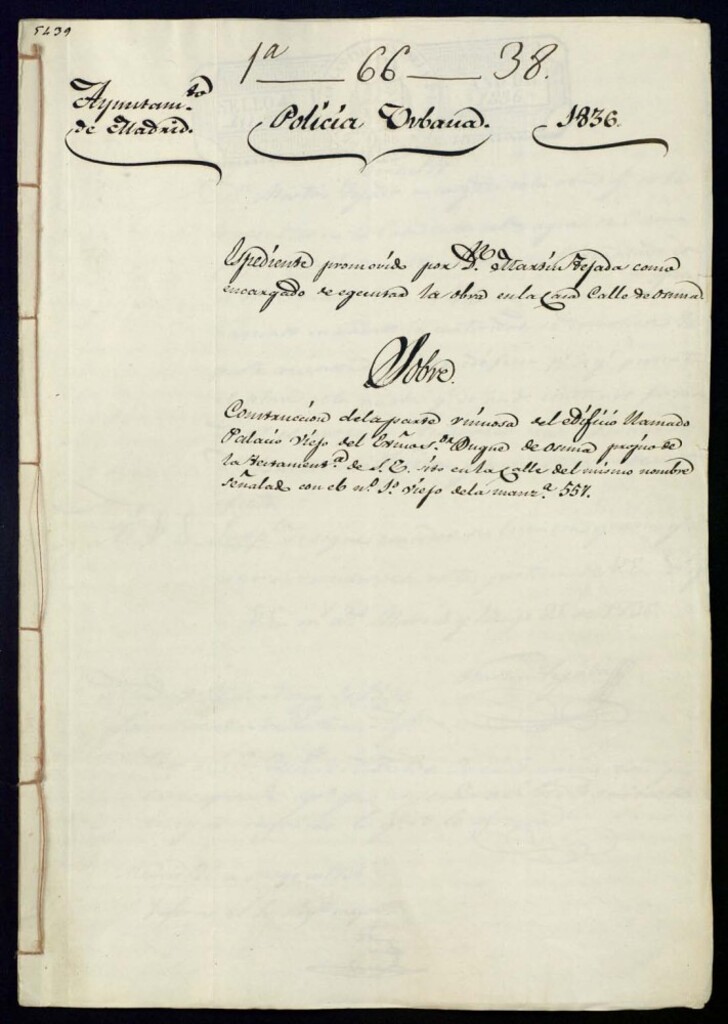 5439
1ª 66 38.
Ayuntamto
de Madrid.
Policía Urbana.
1836.
Espediente promovido por Dn. Martín Tejada como
encargado de egecutar la obra en la Casa Calle de Osuna
Sobre.
Construccion de la parte ruinosa del edificio llamado
Palacio Viejo del Exmo Sor Duque de Osuna propio de
la Testamentª de S. E. sito en la Calle del mismo nombre
señalado con el nº 1º viejo de la manzª 557.